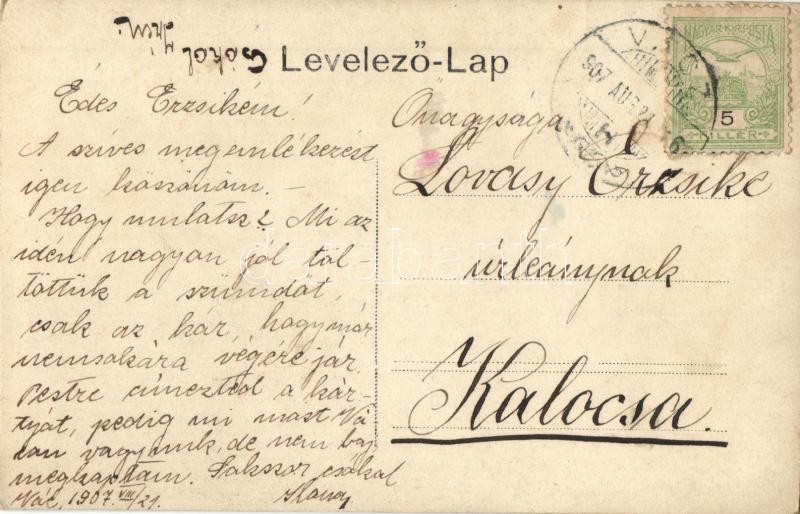 Csókol
Levelező-Lap
Édes Erzsikém!
A szíves megemlékezést
igen köszönöm. —
Hogy mulatsz? Mi az
idén nagyon jól töl-
töttük a szünidőt,
csak az kár, hogy már
nemsokára végére jár.
Pestre címezted a kár-
tyát, pedig mi most Vá-
con vagyunk, de nem baj
megkaptam. Sokszor csókol
Vác, 1907. VIII/21.
Őnagysága
Lovasy Erzsike
úrleánynak
Kalocsa.
VÁCZ
907 AUG 21
MAGYAR KIR. POSTA
5
FILLÉR
darabanth